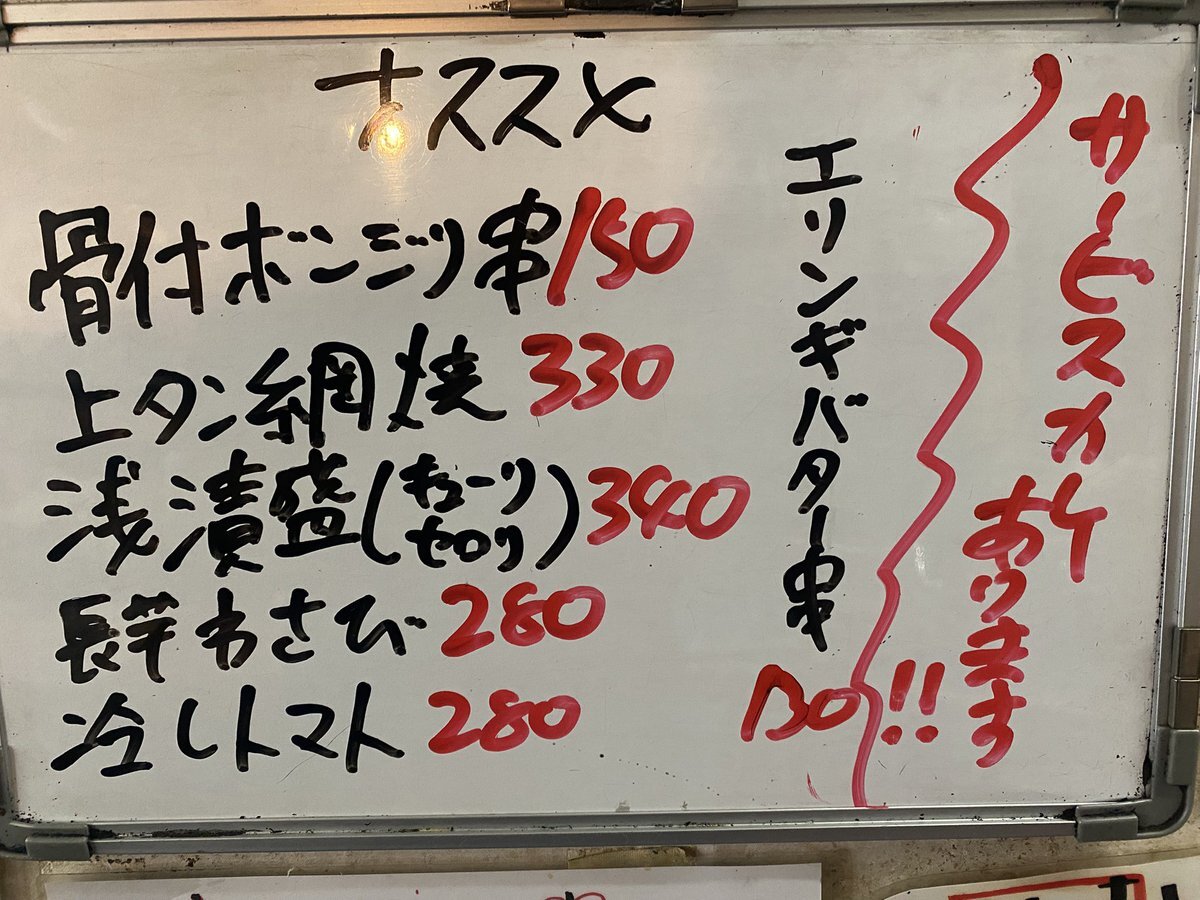 オススメ
骨付ボンジリ串150
上タン網焼 330
浅漬盛(キューリ セロリ)340
長芋わさび280
冷しトマト 280
エリンギバター串
130
サービスカゴ
あります!!